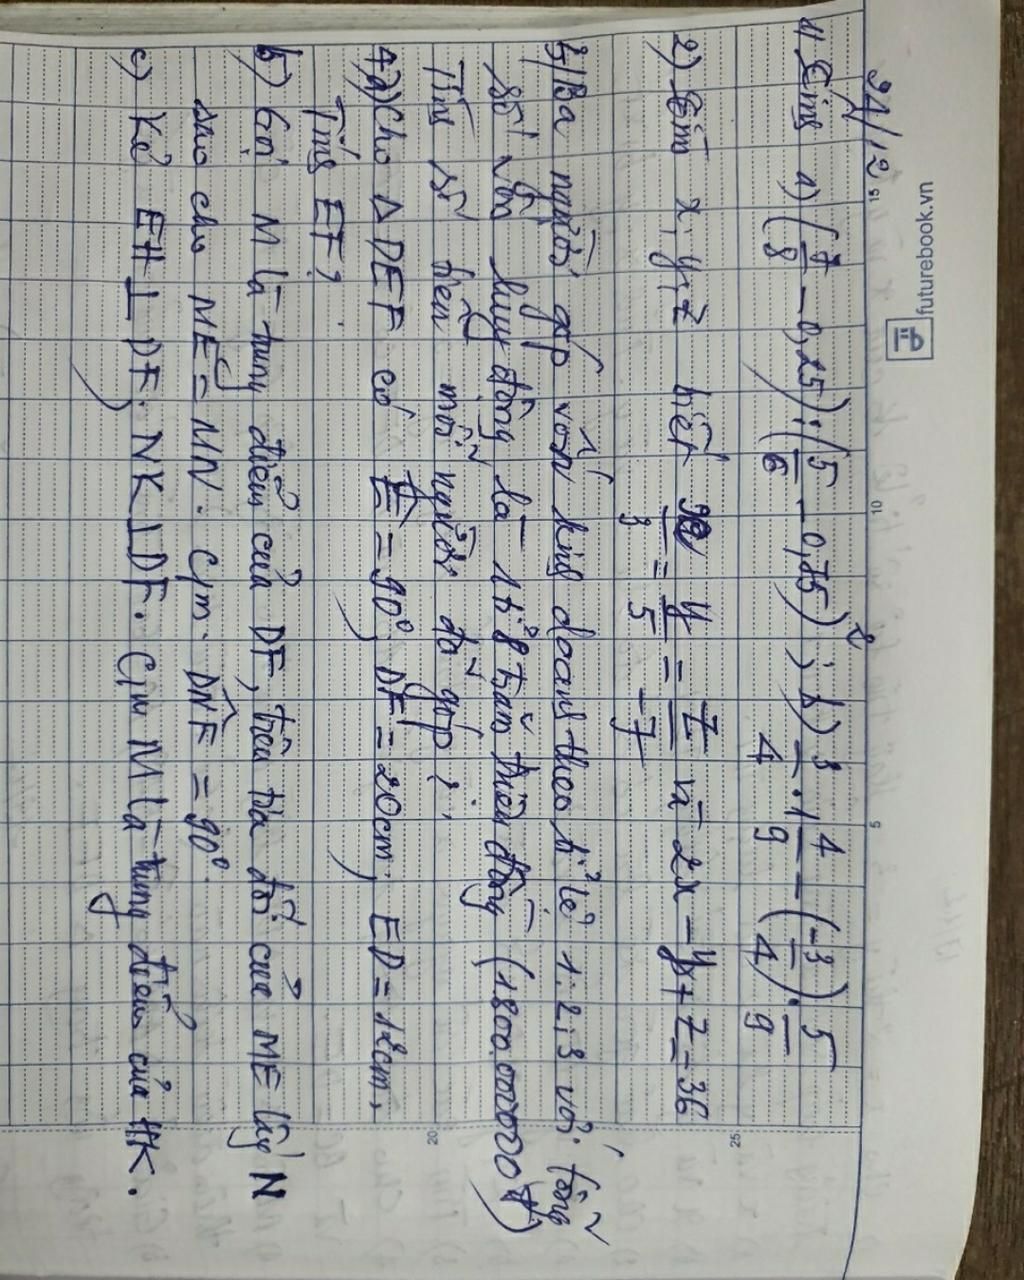 futurebook.vn
24/12.
15 10 5
1) Tính 1) (7/8 - 0,25) : (5/6 - 0,75)² ; b) 3/4 . 1 4/9 - (-3/4) . 5/9
25
2) Tìm x, y, z biết x/3 = y/5 = z/-7 và 2x - y + z = 36
3) Ba người góp vốn kinh doanh theo tỉ lệ 1: 2: 3 với tổng
số vốn huy động là 1 tỉ 8 trăm triệu đồng (1.800.000000đ)
Tính số tiền mỗi người đã góp?
20
4a) Cho Δ DEF có Ê = 90°, DF = 20cm, ED = 12cm,
Tính EF?
b) Gọi M là trung điểm của DF, trên tia đối của ME lấy N
sao cho ME = MN. C/m. DNF = 90°.
c) Kẻ EH ⊥ DF. NK ⊥ DF. C/m M là trung điểm của HK.